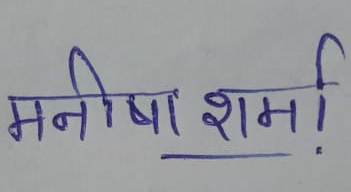 मनीषा शर्मा